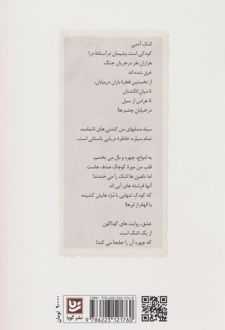 اشک آدمی
کودکی است پشیمان در آستانهٔ در!
هزاران نفر در جریان جنگ
غرق شده‌اند
از نخستین قطرهٔ باران در بیابان،
تا میان انگشتان
تا هراس از سیل
در خیابان چشم‌ها!
سیاه مشق‌های من کشتی های ناتمامند
تمام سیاره، خاطرهٔ دریایی باستانی است.
به امواج، چهره و بال می بخشم،
قلب من موزهٔ کوچک صدف هاست
اما دلفین ها اشک را می خندند!
آنها فرشته های آبی اند
که کودک تنهایی با مداد هایش کشیده
با الهام از ابرها!
عشق، روایت های گوناگون
از یک اشک است
که چهره آن را جابجا می کند!
تومان
نشر گویا
9 786223 121760